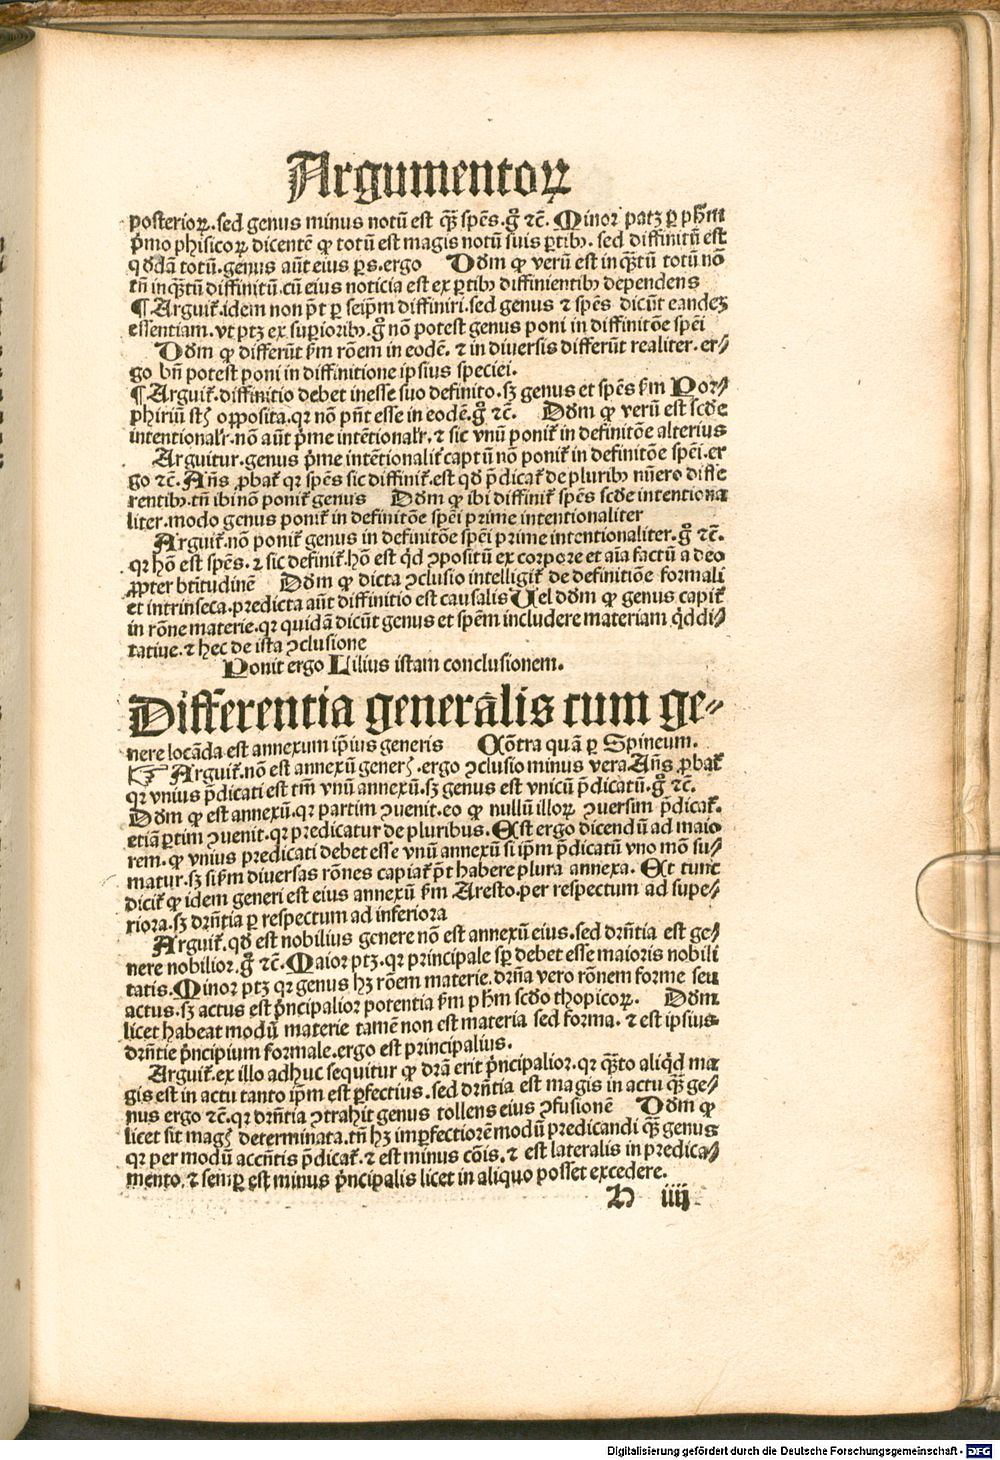 Argumentoꝝ
posterioꝝ. sed genus minus notū est qͣꝫ spēs. gͦ ⁊c̄. Minor patꝫ ꝑ ph̄m
p̄mo phisicoꝝ dicentē ꝙ totū est magis notū suis ꝑtibꝰ. sed diffinitū est
qͦddā totū. genus aūt eius ꝑs. ergo Dd̄m ꝙ verū est in qͣꝫtū totū nō
tn̄ inqͣꝫtū diffinitū. cū eius noticia est ex ꝑtibꝰ diffinientibꝰ dependens
¶ Arguit̄. idem non pōt ꝑ seip̄m diffiniri. sed genus ⁊ spēs dicūt eandeꝫ
essentiam. vt ptꝫ ex suꝑioribꝰ. gͦ nō potest genus poni in diffinitōe spēi
Dd̄m ꝙ differūt ẜm rōem in eodē. ⁊ in diuersis differūt realiter. er⸗
go bn̄ potest poni in diffinitione ipsius speciei.
¶ Arguit̄. diffinitio debet inesse suo definito. sꝫ genus et spēs ẜm Por⸗
phiriū st̄ oꝓposita. qꝛ nō pn̄t esse in eodē. gͦ ⁊c̄. Dd̄m ꝙ verū est scd̄e
intentionalr̄. nō aūt p̄me intētionalr̄. ⁊ sic vnū ponit̄ in definitōe alterius
Arguitur. genus p̄me intētionalit̄ captū nō ponit̄ in definitōe spēi. er
go ⁊c̄. Añs ꝓbat̄ qꝛ spēs sic diffinit̄. est qd̄ p̄dicat̄ de pluribꝰ nūero diffe
rentibꝰ. tn̄ ibi nō ponit̄ genus Dd̄m ꝙ ibi diffinit̄ spēs scd̄e intentiona
liter. modo genus ponit̄ in definitōe spēi prime intentionaliter
Arguit̄. nō ponit̄ genus in definitōe spēi prime intentionaliter. gͦ ⁊c̄.
qꝛ hō est spēs. ⁊ sic definit̄. hō est qd̄ ꝯpositū ex corpore et aīa factū a deo
ꝓpter btītudinē Dd̄m ꝙ dicta ꝯclusio intelligit̄ de definitiōe formali
et intrinseca. predicta aūt diffinitio est causalis Uel dd̄m ꝙ genus capit̄
in rōne materie. qꝛ quidā dicūt genus et spēm includere materiam qͥddi⸗
tatiue. ⁊ hec de ista ꝯclusione
Ponit ergo Lilius istam conclusionem.
Differentia generālis cum ge⸗
nere locāda est annexum ip̄ius generis Cōtra quā ꝑ Spineum.
☞ Arguit̄. nō est annexū generꝭ. ergo ꝯclusio minus vera. Añs ꝓbat̄
qꝛ vnius p̄dicati est tm̄ vnū annexū. sꝫ genus est vnicū p̄dicatū. gͦ ⁊c̄.
Dd̄m ꝙ est annexū. qꝛ partim ꝯuenit. eo ꝙ nullū illoꝝ ꝯuersim p̄dicat̄.
etiā ꝑtim ꝯuenit. qꝛ predicatur de pluribus. Est ergo dicendū ad maio
rem. ꝙ vnius predicati debet esse vnū annexū si ip̄m p̄dicatū vno mō su⸗
matur. sꝫ si ẜm diuersas rōnes capiat̄ pōt habere plura annexa. Et tunc
dicit̄ ꝙ idem generi est eius annexū ẜm Aresto. per respectum ad supe⸗
riora. sꝫ dr̄ntia ꝑ respectum ad inferiora
Arguit̄. qd̄ est nobilius genere nō est annexū eius. sed dr̄ntia est ge⸗
nere nobilior. gͦ ⁊c̄. Maior ptꝫ. qꝛ principale sꝑ debet esse maioris nobili
tatis. Minor ptꝫ qꝛ genus hꝫ rōem materie. dr̄na vero rōnem forme seu
actus. sꝫ actus est p̄ncipalior potentia ẜm ph̄m scd̄o thopicoꝝ. Dd̄m
licet habeat modū materie tamē non est materia sed forma. ⁊ est ipsius
dr̄ntie p̄ncipium formale. ergo est principalius.
Arguit̄. ex illo adhuc sequitur ꝙ dr̄a erit p̄ncipalior. qꝛ qͣꝫto aliqͥd ma
gis est in actu tanto ip̄m est ꝑfectius. sed dr̄ntia est magis in actu qͣꝫ ge⸗
nus ergo ⁊c̄. qꝛ dr̄ntia ꝯtrahit genus tollens eius ꝯfusionē Dd̄m ꝙ
licet sit magꝭ determinata. tn̄ hꝫ imꝑfectiorē modū predicandi qͣꝫ genus
qꝛ per modū accn̄tis p̄dicat̄. ⁊ est minus cōis. ⁊ est lateralis in predica⸗
mento. ⁊ semꝑ est minus p̄ncipalis licet in aliquo posset excedere.
H iiij
Digitalisierung gefördert durch die Deutsche Forschungsgemeinschaft - DFG